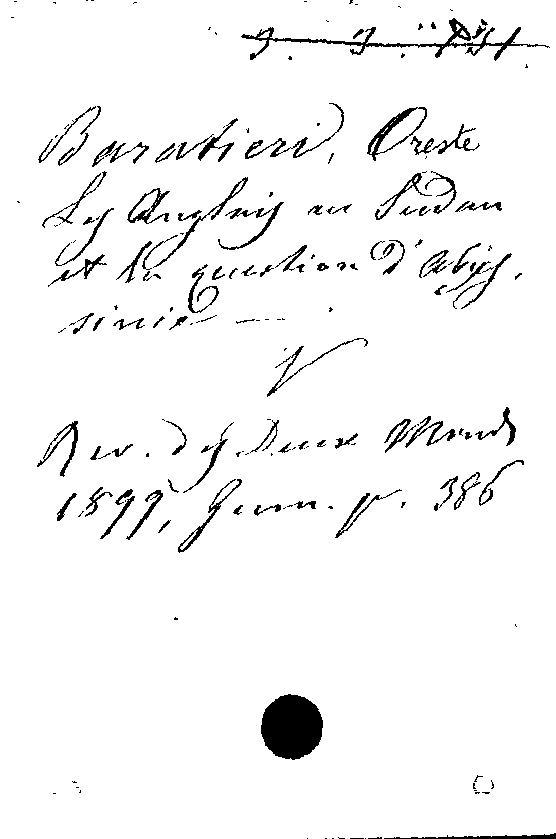 Baratieri, Oreste
Les Anglais au Sudan
et la question d'Abys,
sinie —
V
Rev. des Deux Monds
1899, p. 386